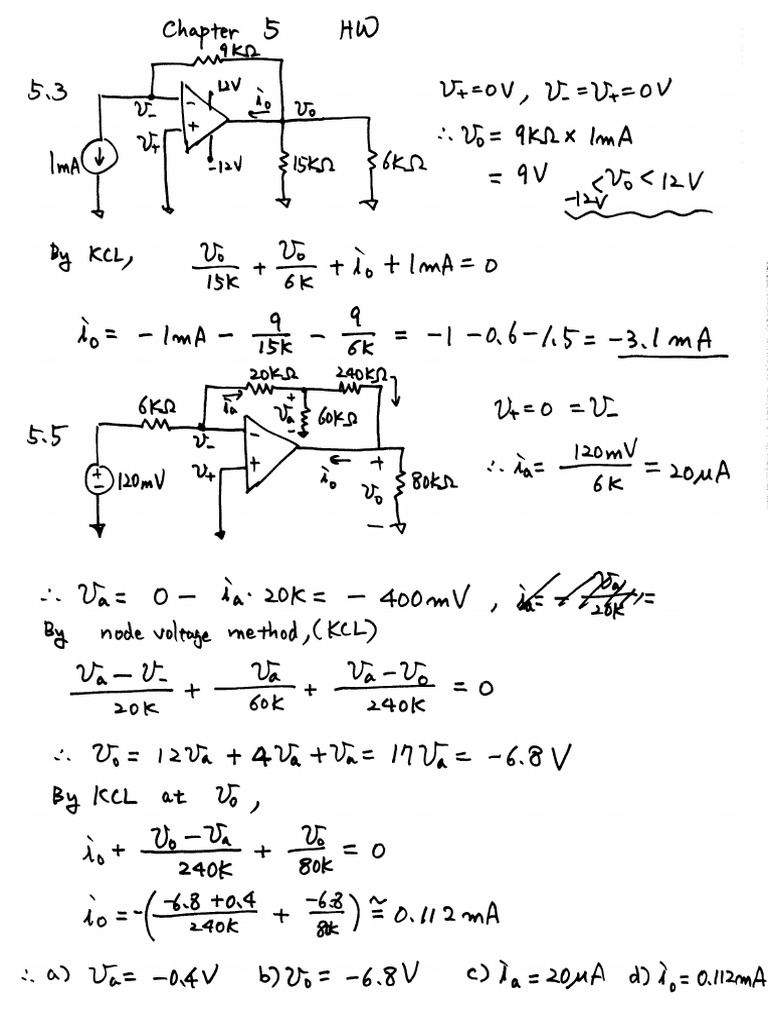 Chapter 5 HW
5.3
9KΩ
12V
-12V
v₋
v₊
i₀
v₀
1mA
15KΩ
6KΩ
v₊=0V, v₋=v₊=0V
∴ v₀ = 9KΩ × 1mA
= 9V -12V < v₀ < 12V
By KCL, v₀/15K + v₀/6K + i₀ + 1mA = 0
i₀ = -1mA - 9/15K - 9/6K = -1-0.6-1.5 = -3.1mA
5.5
6KΩ
20KΩ
240KΩ
iₐ
+ vₐ -
60KΩ
v₋
v₊
120mV
i₀
+ v₀ -
80KΩ
v₊=0 =v₋
∴ iₐ = 120mV/6K = 20μA
∴ vₐ = 0 - iₐ·20K = -400mV ,
By node voltage method, (KCL)
(vₐ-v₋)/20K + vₐ/60K + (vₐ-v₀)/240K = 0
∴ v₀ = 12vₐ + 4vₐ + vₐ = 17vₐ = -6.8V
By KCL at v₀,
i₀ + (v₀-vₐ)/240K + v₀/80K = 0
i₀ = -((-6.8+0.4)/240K + -6.8/80k) ≅ 0.112mA
∴ a) vₐ = -0.4V b) v₀ = -6.8V c) iₐ = 20μA d) i₀ = 0.112mA